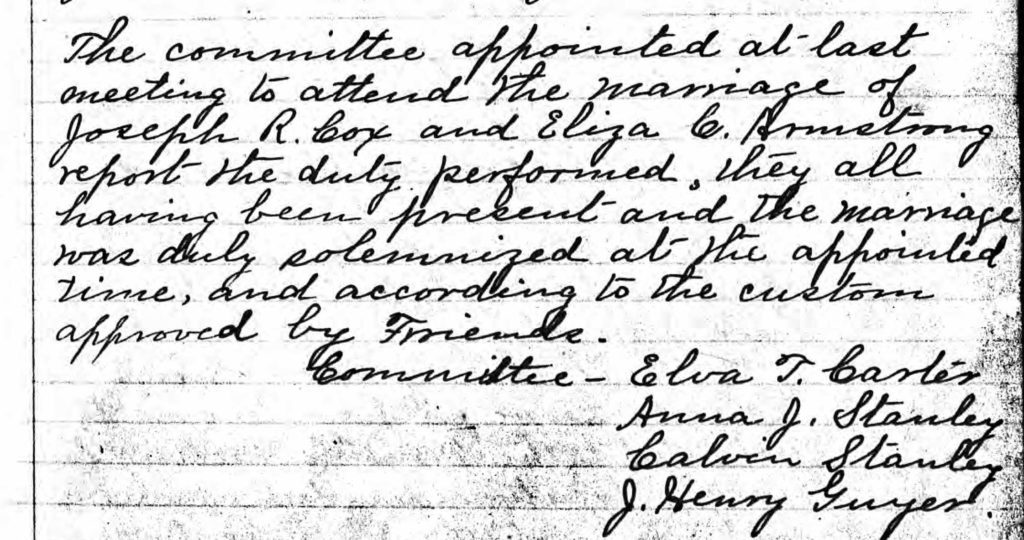 The committee appointed at last
meeting to attend the marriage of
Joseph R. Cox and Eliza C. Armstrong
report the duty performed, they all
having been present and the marriage
was duly solemnized at the appointed
time, and according to the custom
approved by Friends.
Committee - Elva T. Carter
Anna J. Stanley
Calvin Stanley
J. Henry Guyer.